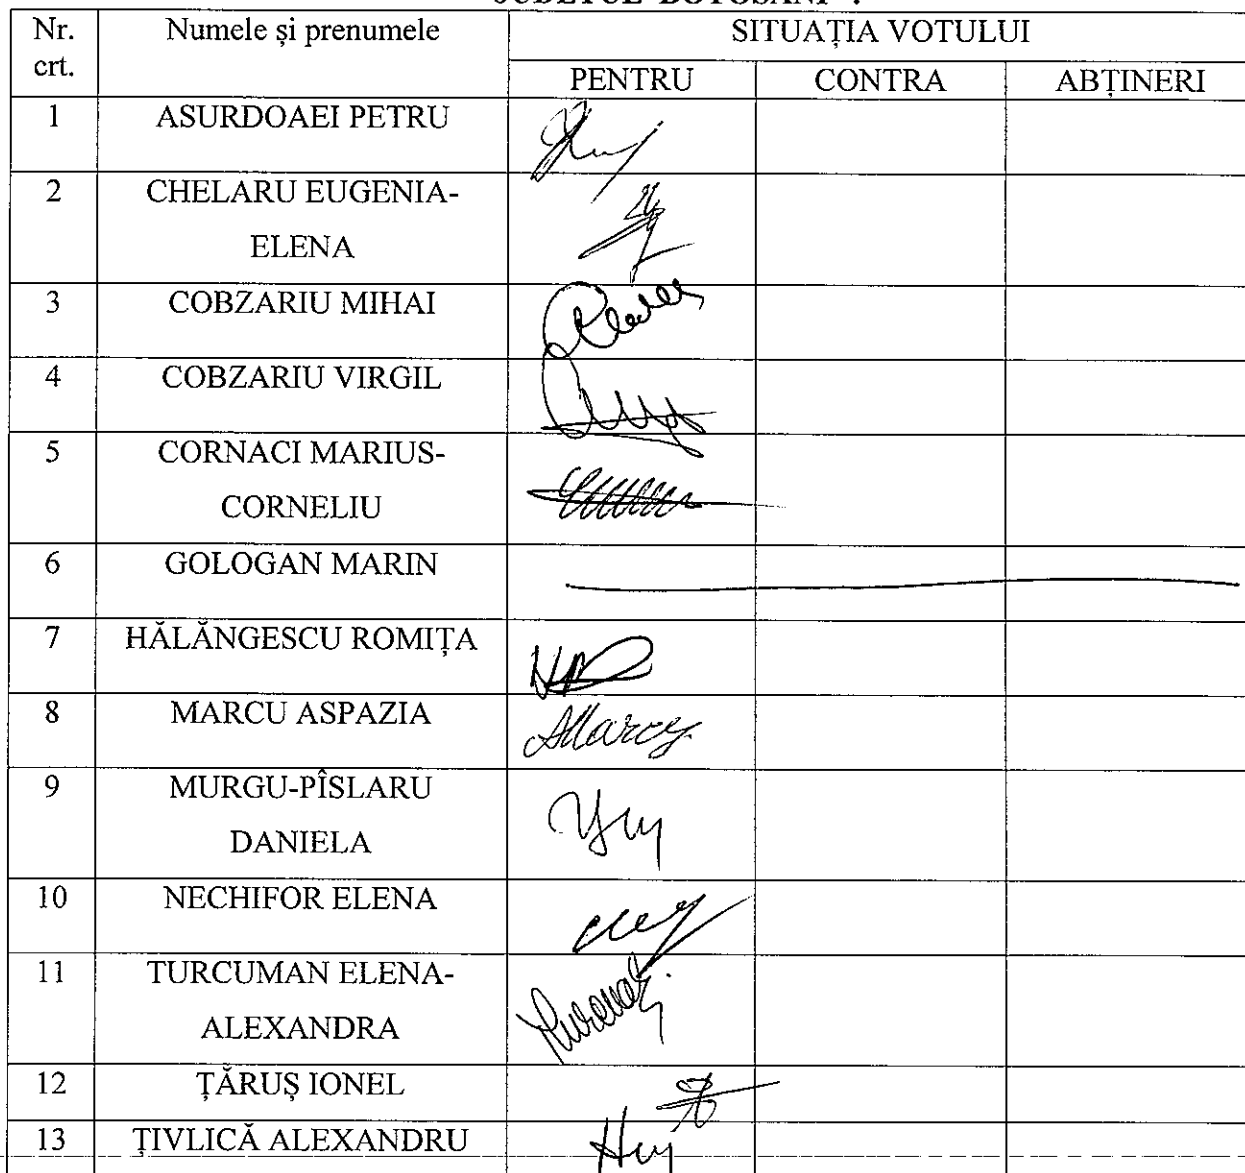 JUDEȚUL BOTOȘANI".
Nr. crt. Numele și prenumele SITUAȚIA VOTULUI
PENTRU CONTRA ABȚINERI
1 ASURDOAEI PETRU
2 CHELARU EUGENIA-
ELENA
3 COBZARIU MIHAI
4 COBZARIU VIRGIL
5 CORNACI MARIUS-
CORNELIU
6 GOLOGAN MARIN
7 HĂLĂNGESCU ROMIȚA
8 MARCU ASPAZIA
AMarcu
9 MURGU-PÎSLARU
DANIELA
10 NECHIFOR ELENA
11 TURCUMAN ELENA-
ALEXANDRA
12 ȚĂRUȘ IONEL
13 ȚIVLICĂ ALEXANDRU